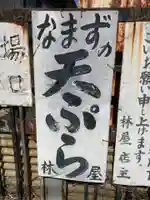 なまずの
天ぷら
林屋
揚
お願い申し上げます。
林屋 店主